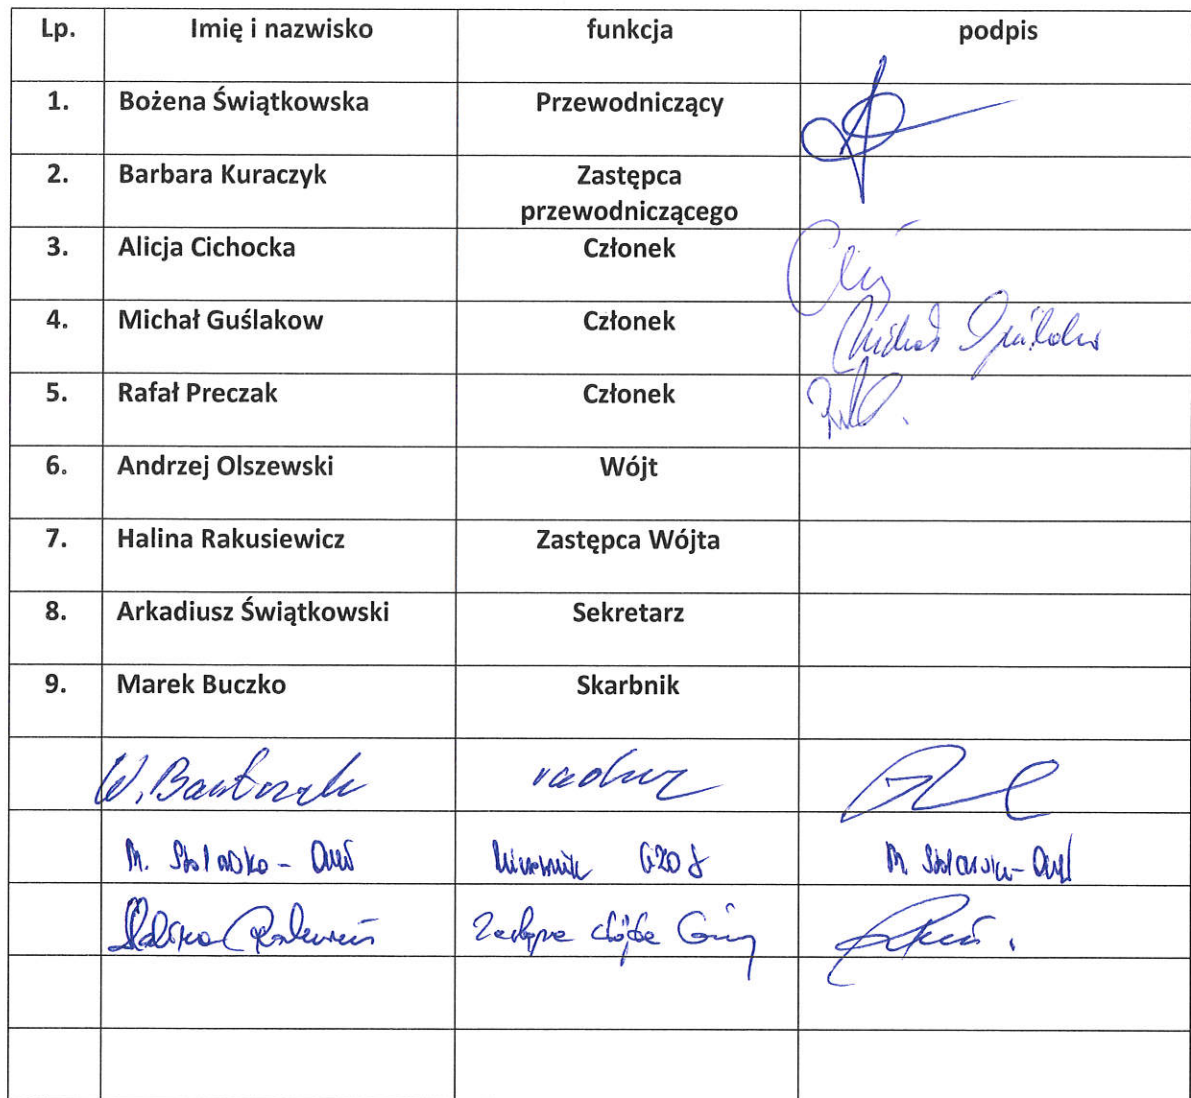 Lp. Imię i nazwisko funkcja podpis
1. Bożena Świątkowska Przewodniczący
2. Barbara Kuraczyk Zastępca
przewodniczącego
3. Alicja Cichocka Członek
4. Michał Guślakow Członek Michał
5. Rafał Preczak Członek
6. Andrzej Olszewski Wójt
7. Halina Rakusiewicz Zastępca Wójta
8. Arkadiusz Świątkowski Sekretarz
9. Marek Buczko Skarbnik
W. radny
M. M.
Halina Zastępca Wójta Gminy